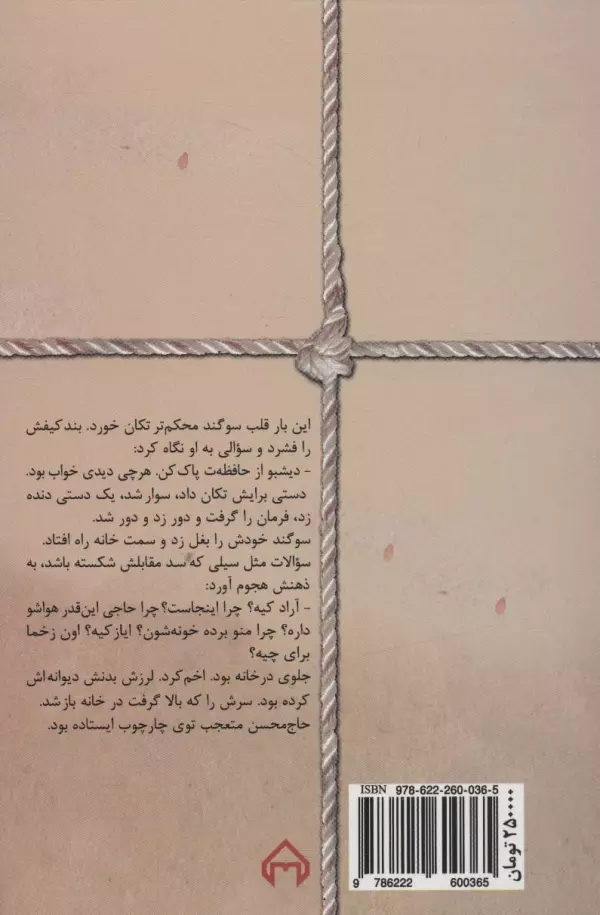 این بار قلب سوگند محکم‌تر تکان خورد. بند کیفش
را فشرد و سؤالی به او نگاه کرد:
- دیشبو از حافظه‌ت پاک کن. هرچی دیدی خواب بود.
دستی برایش تکان داد، سوار شد، یک دستی دنده
زد، فرمان را گرفت و دور زد و دور شد.
سوگند خودش را بغل زد و سمت خانه راه افتاد.
سؤالات مثل سیلی که سد مقابلش شکسته باشد، به
ذهنش هجوم آورد:
- آراد کیه؟ چرا اینجاست؟ چرا حاجی این‌قدر هواشو
داره؟ چرا منو برده خونه‌شون؟ ایاز کیه؟ اون زخما
برای چیه؟
جلوی در خانه بود. اخم کرد. لرزش بدنش دیوانه‌اش
کرده بود. سرش را که بالا گرفت در خانه باز شد.
حاج‌محسن متعجب توی چارچوب ایستاده بود.
ISBN 978-622-260-036-5
9 786222 600365
۲۵۰۰۰۰ تومان